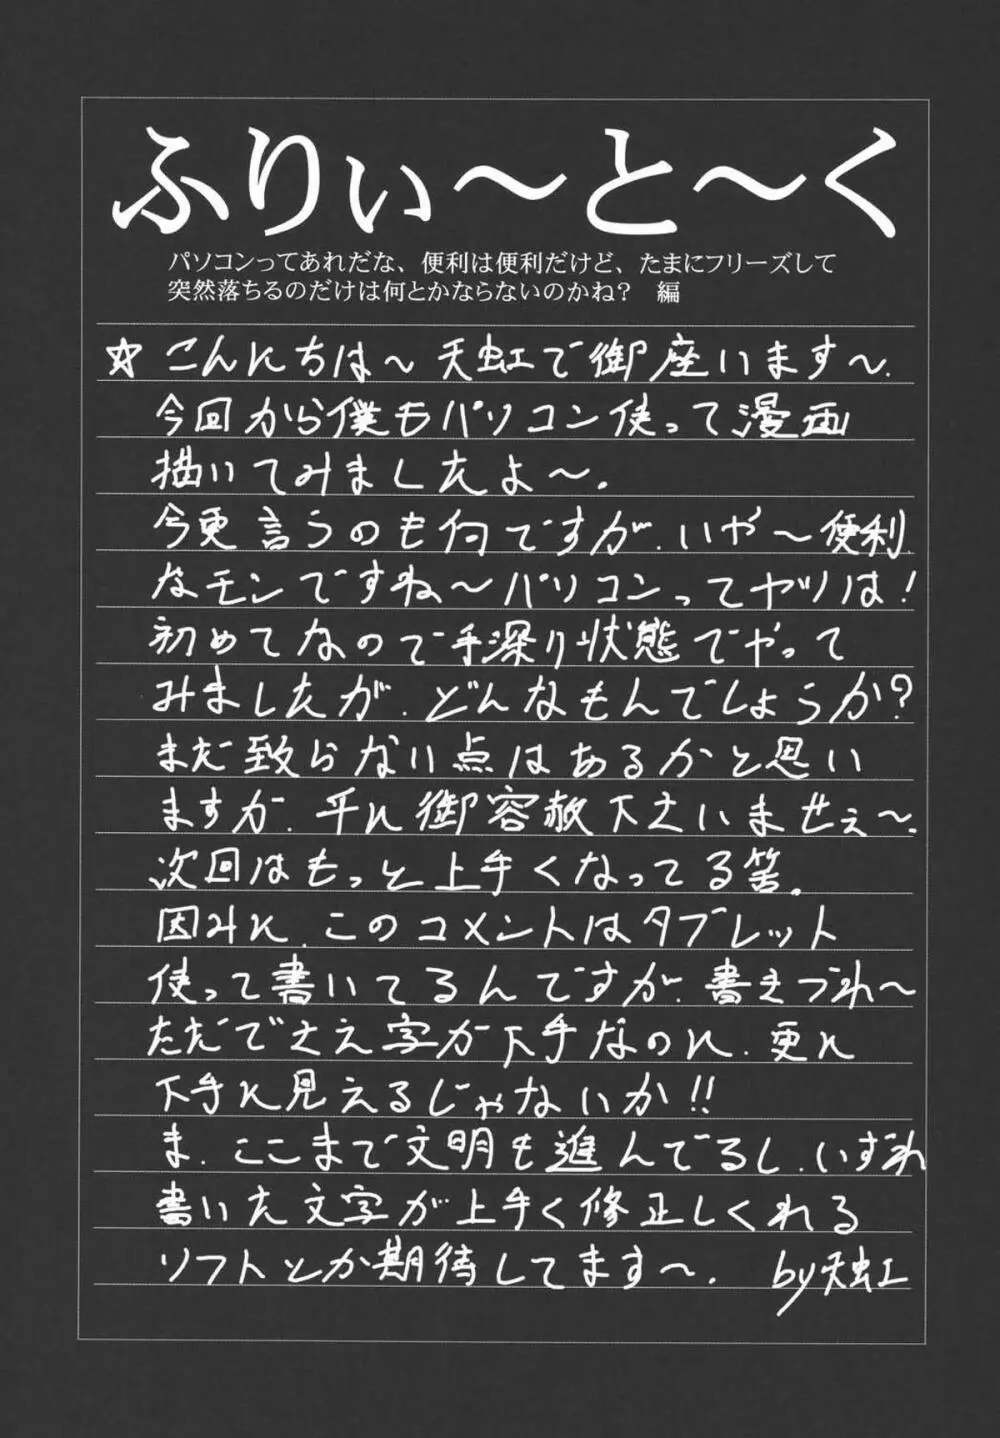 ふりぃ～と～く
パソコンってあれだな、便利は便利だけど、たまにフリーズして
突然落ちるのだけは何とかならないのかね？　編
☆ こんにちは～ 天虹で御座います～.
今回から僕もパソコン使って漫画
描いてみましたよ～.
今更言うのも何ですが.いや～便利.
なモンですね～パソコンってヤツは!
初めてなので手深り状態でやって
みましたが.どんなもんでしょうか?
まだ致らない点はあるかと思い
ますが.平に御容赦下さいませぇ～.
次回はもっと上手くなってる筈.
因みに.このコメントはタブレット
使って書いてるんですが.書きづれ～
ただでさえ字が下手なのに.更に
下手に見えるじゃないか!!
ま.ここまで文明も進んでるし.いずれ
書いた文字が上手く修正しくれる
ソフトとか期待してます～. by天虹